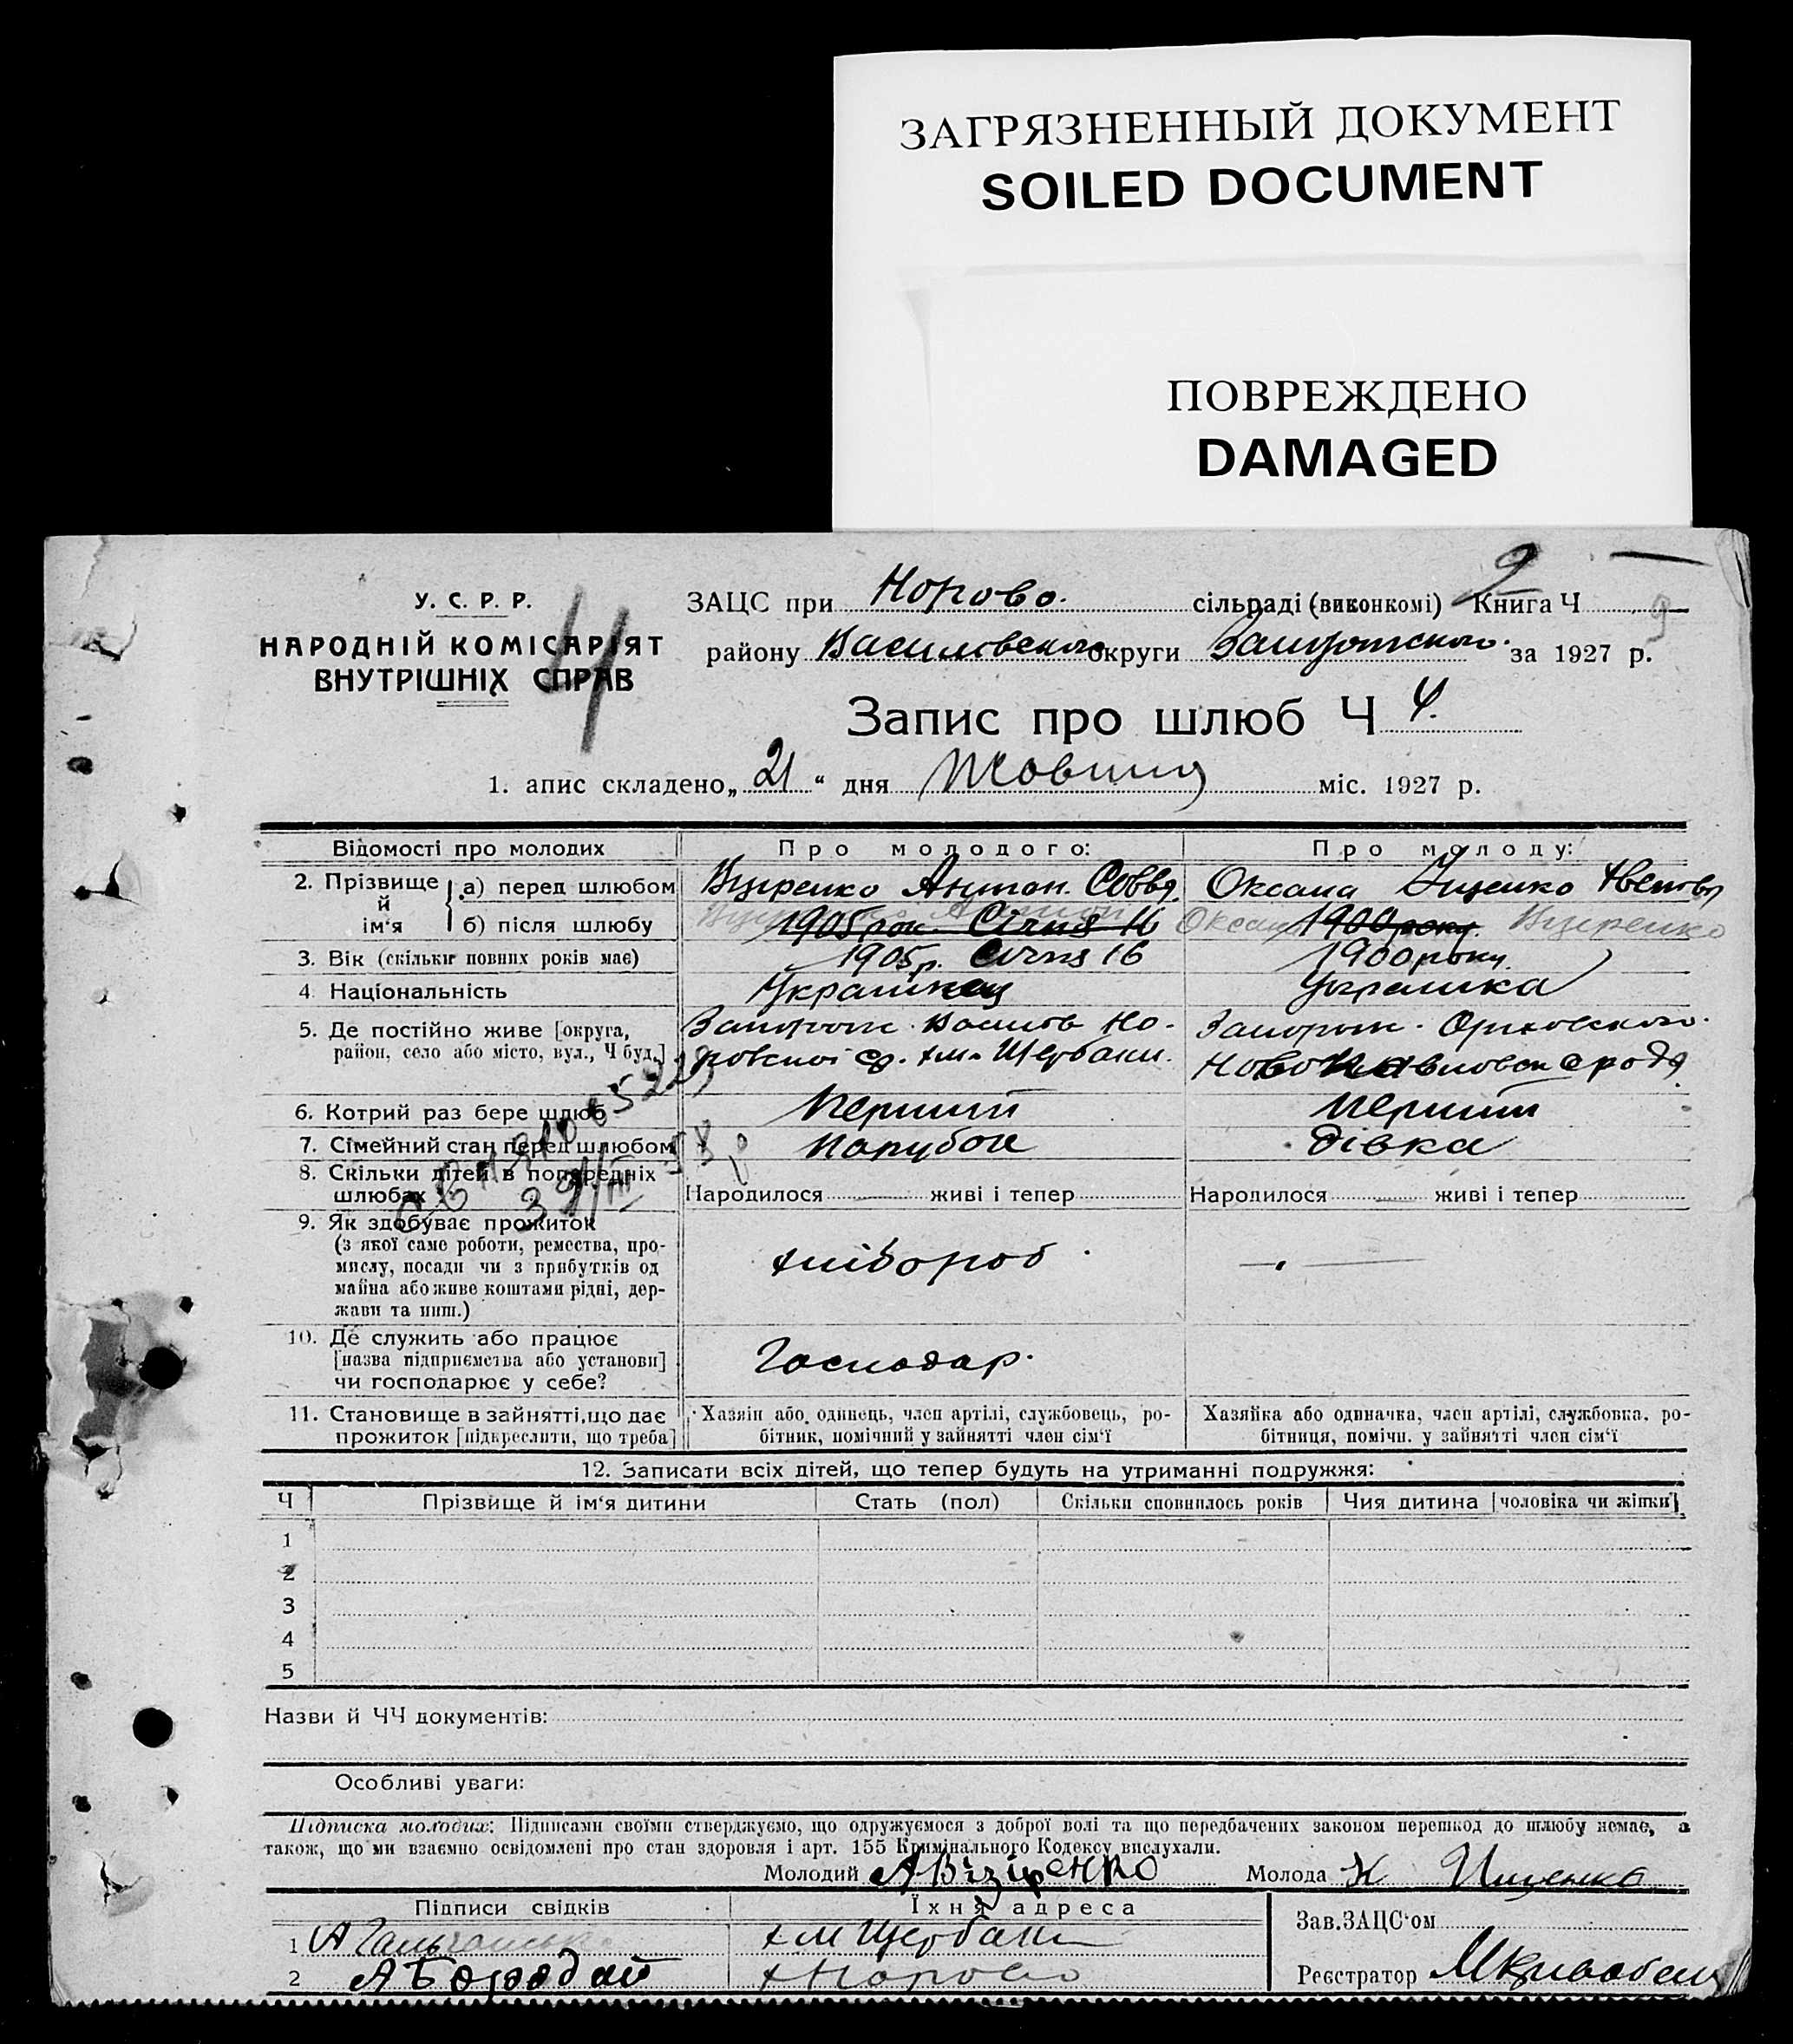 ЗАГРЯЗНЕННЫЙ ДОКУМЕНТ
SOILED DOCUMENT
ПОВРЕЖДЕНО
DAMAGED
У. С. Р. Р.
НАРОДНІЙ КОМІСАРІЯТ
ВНУТРІШНІХ СПРАВ
ЗАЦС при Норово. сільраді (виконкомі) Книга Ч
району округи за 1927 р.
Запис про шлюб Ч 4.
1. апис складено „21“ дня міс. 1927 р.
Відомості про молодих
Про молодого:
Про молоду:
2. Прізвище й ім‘я
а) перед шлюбом Антон. Оксана Іщенко
б) після шлюбу 1905 Січня 16 Оксана 1900 року.
3. Вік (скільки повних років має) 1905 р. Січня 16 1900 року
4 Національність Українець Українка
5. Де постійно живе [округа,
район, село або місто, вул., Ч буд.]
6. Котрий раз бере шлюб Перший Перший
7. Сімейний стан перед шлюбом Парубок Дівка
8. Скільки дітей в попередніх
шлюбах Народилося живі і тепер Народилося живі і тепер
9. Як здобуває прожиток
(з якої саме роботи, ремества, про-
мислу, посади чи з прибутків од
майна або живе коштами рідні, дер-
жави та инш.)
хлібороб
10. Де служить або працює
[назва підприємства або установи]
чи господарює у себе?
Господар.
11. Становище в зайнятті, що дає
прожиток [підкреслити, що треба]
Хазяїн або одинець, член артілі, службовець, ро-
бітник, помічний у зайнятті член сім‘ї
Хазяйка або одиначка, член артілі, службовка, ро-
бітниця, помічн. у зайнятті член сім‘ї
12. Записати всіх дітей, що тепер будуть на утриманні подружжя:
Ч Прізвище й ім‘я дитини Стать (пол) Скільки сповнилось років Чия дитина [чоловіка чи жінки]
1
2
3
4
5
Назви й ЧЧ документів:
Особливі уваги:
Підписка молодих: Підписами своїми стверджуємо, що одружуємося з доброї волі та що передбачених законом перешкод до шлюбу немає, а
також, що ми взаємно освідомлені про стан здоровля і арт. 155 Кримінального Кодексу вислухали.
Молодий Молода Іщенко
Підписи свідків
Їхня адреса
Зав.ЗАЦС‘ом
1 Щербаки
2 А Бородай Норово
Реєстратор